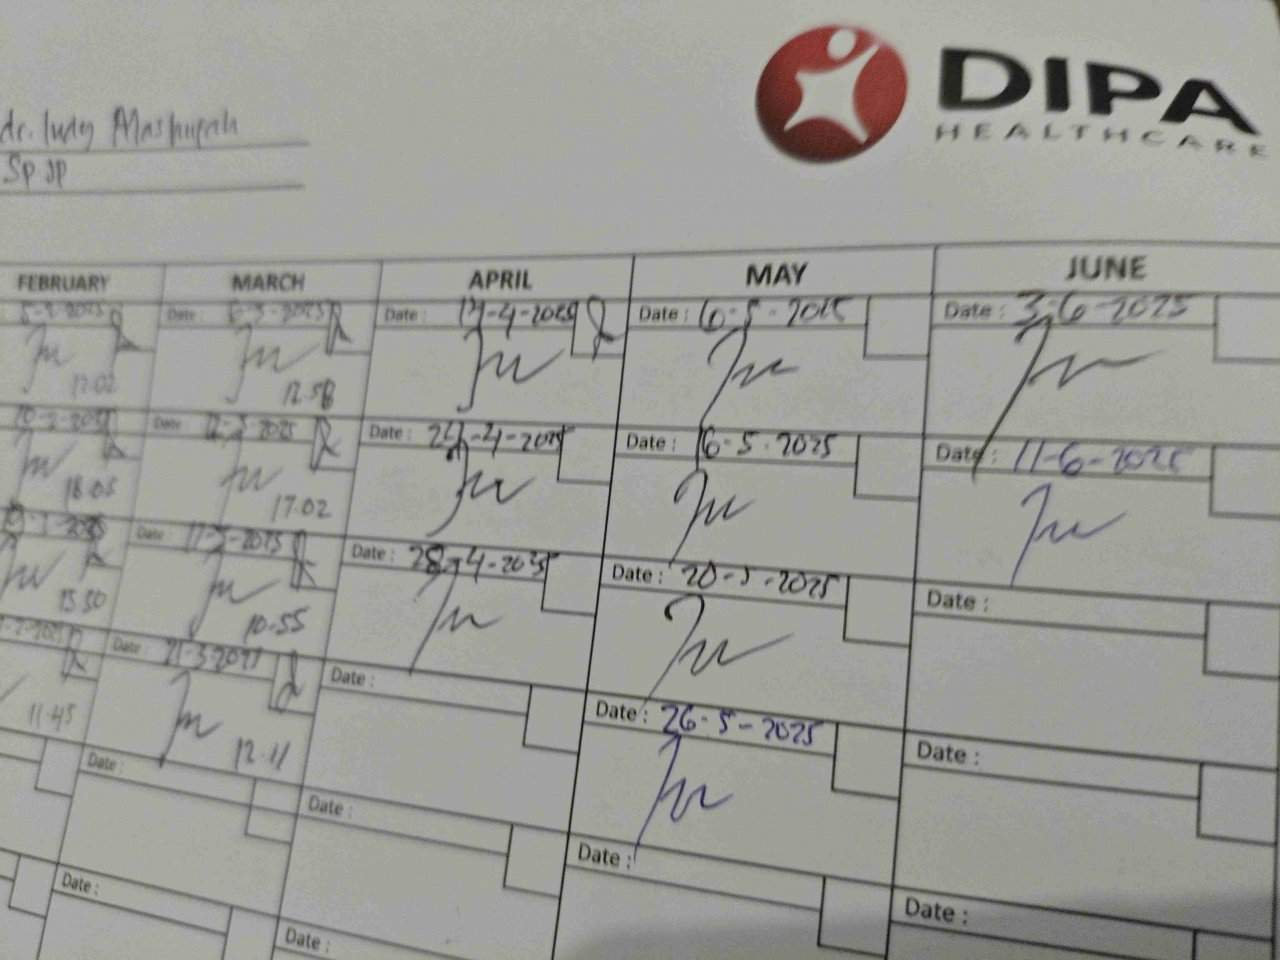 DIPA
HEALTHCARE
dr.
Sp JP
FEBRUARY MARCH APRIL MAY JUNE
5-2-2025 Date : 6-3-2025 Date : Date : 6-5-2025 Date : 3-6-2025
17.02 12.58
10-2-2025 Date : 12-3-2025 Date : 24-4-2025 Date : 16-5-2025 Date : 11-6-2025
18.05 17.02
Date : 17-3-2025 Date : 28-4-2025 Date : 20-5-2025 Date :
15.50 10.55
Date : 21-3-2025 Date : Date : 26-5-2025 Date :
11.45 12.11
Date : Date : Date : Date :
Date : Date :